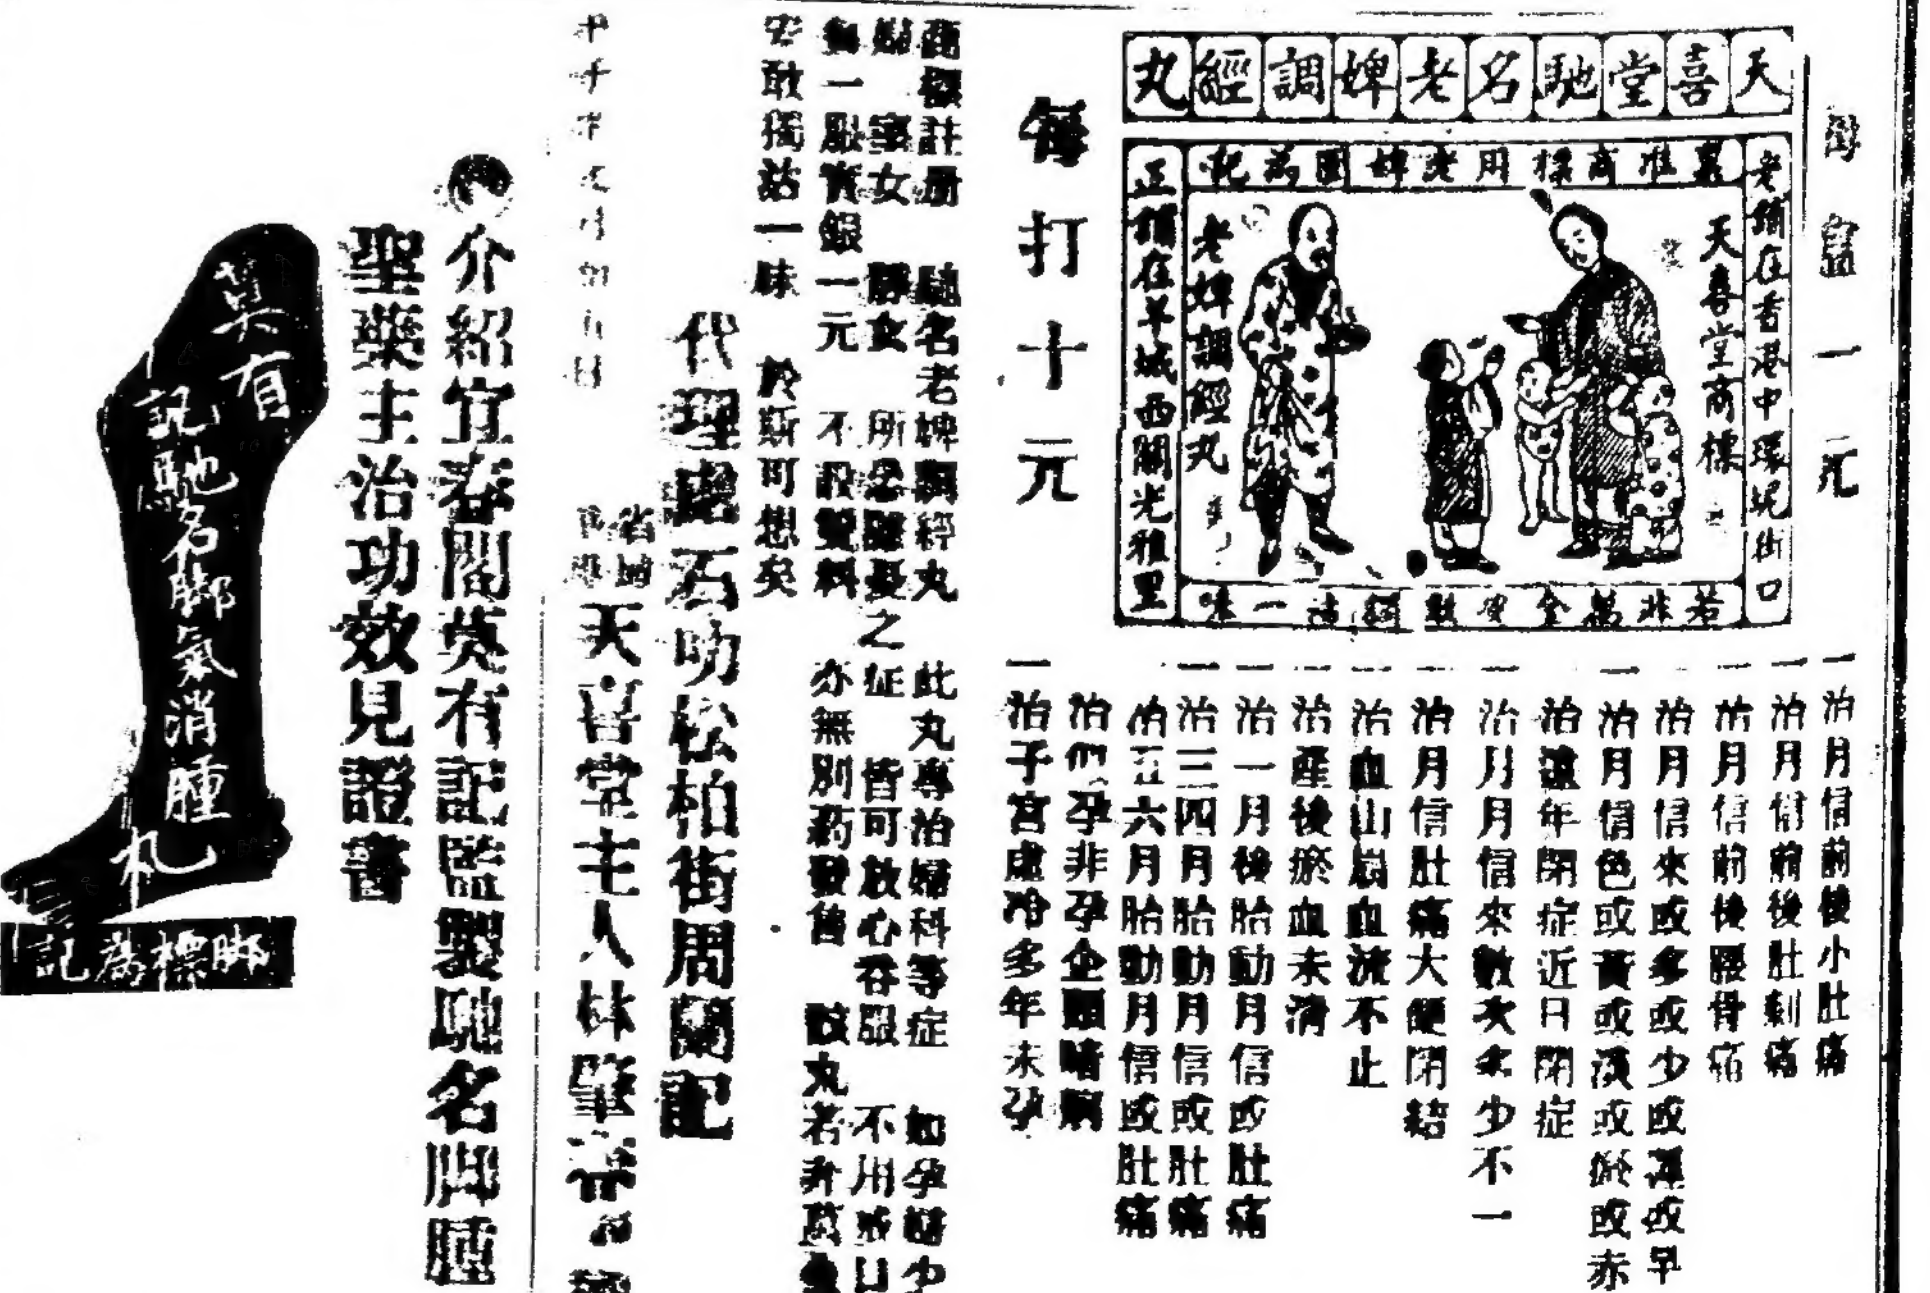 天喜堂馳名老婢調經丸
每盒一元
老舖在香港中環坭街口
稟准商標用老婢圖為記
天喜堂商標
老婢調經丸
正舖在羊城西關光雅里
若非萬全安敢獨沽一味
每打十元
一治月信前後小肚痛
一治月信前後肚刺痛
一治月信前後腰骨痛
一治月信來或多或少或遲或早
一治月信色或黃或淡或瘀或赤
一治遠年閉症近日閉症
一治月月信來數次多少不一
一治月信肚痛大便閉結
一治血山崩血流不止
一治產後瘀血未清
一治一月後胎動月信或肚痛
一治三四月胎動月信或肚痛
治五六月胎動月信或肚痛
治似孕非孕企頭暗病
一治子宮虛冷多年未孕
商標註册 馳名老婢調經丸 此丸專治婦科等症 如孕婦少
婦 室女 靜女 所患難憂之症 皆可放心吞服 不用戒口
每一服實銀一元 不設雙料 亦無別药發售 該丸若非萬全
安敢獨沽一味 於斯可想矣
代理處石叻松柏街周蘭記
省城
天喜堂主人林肇
介紹宜春閣英有記監製馳名脚腫
聖藥主治功效見證書
英有
記馳名脚氣消腫
丸
脚標為記